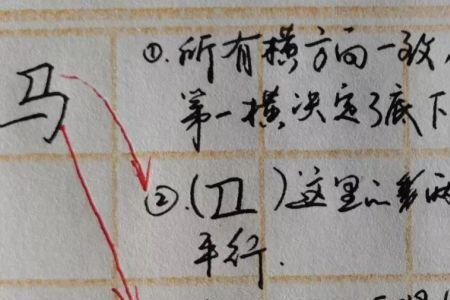 马
①.所有横方向一致,
第一横决定了底下
②.( )这里的 两
平行.